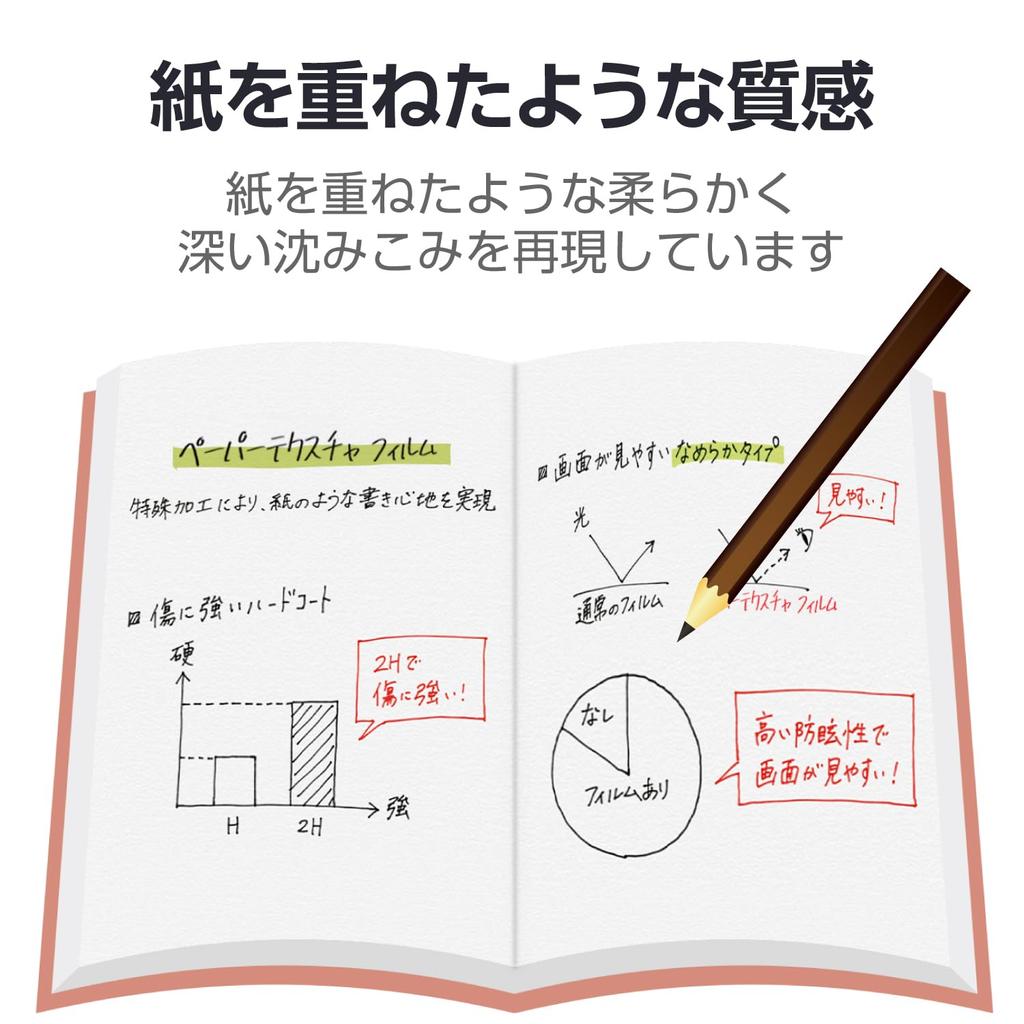 紙を重ねたような質感
紙を重ねたような柔らかく
深い沈みこみを再現しています
ペーパーテクスチャ フィルム
特殊加工により、紙のような書き心地を実現
傷に強いハードコート
硬
2Hで
傷に強い!
H
2H
強
画面が見やすいなめらかタイプ
見やすい!
光
通常のフィルム
ーテクスチャ フィルム
なし
フィルムあり
高い防眩性で
画面が見やすい!